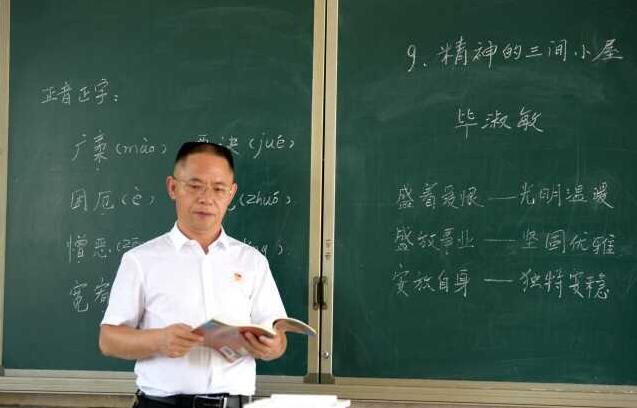 正音正字：
广袤(mào) (jué)
困厄(è) (zhuō)
憎恶
宽
9.精神的三间小屋
毕淑敏
盛着爱恨——光明温暖
盛放事业——坚固优雅
安放自身——独特安稳